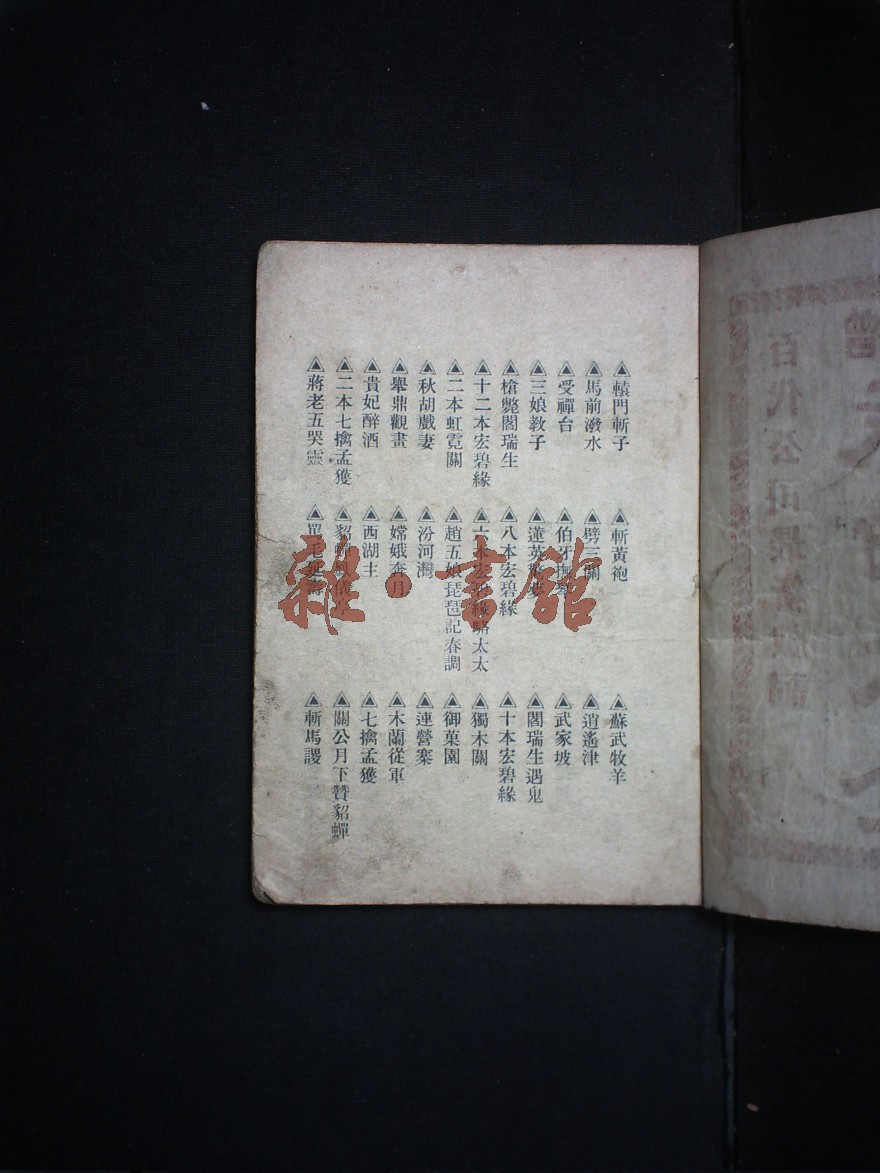 ▲轅門斬子
▲馬前潑水
▲受禪台
▲三娘教子
▲槍斃閻瑞生
▲十二本宏碧緣
▲二本虹霓關
▲秋胡戲妻
▲舉鼎觀畫
▲貴妃醉酒
▲二本七擒孟獲
▲蔣老五哭靈
▲斬黃袍
▲劈三關
▲伯牙
▲蓮英
▲八本宏碧緣
本宏碧緣駱太太
▲趙五娘琵琶記春調
▲汾河灣
▲嫦娥奔月
▲西湖主
▲貂蟬
▲蘇武牧羊
▲逍遙津
▲武家坡
▲閻瑞生遇鬼
▲十本宏碧緣
▲獨木關
▲御菓園
▲連營寨
▲木蘭從軍
▲七擒孟獲
▲關公月下贊貂蟬
▲斬馬謖
雜·書館
百代公司